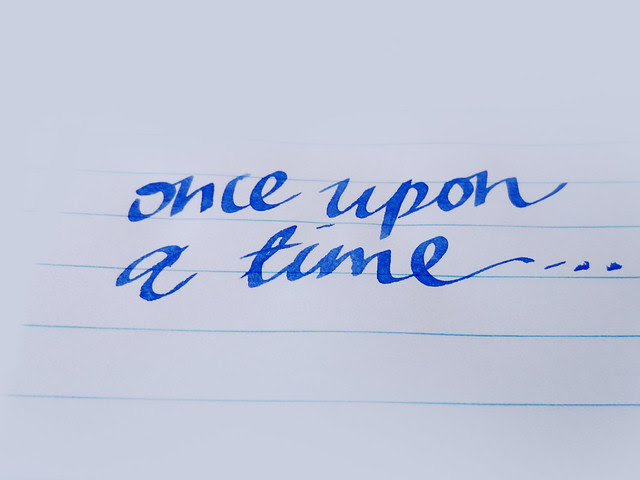 once upon
a time...